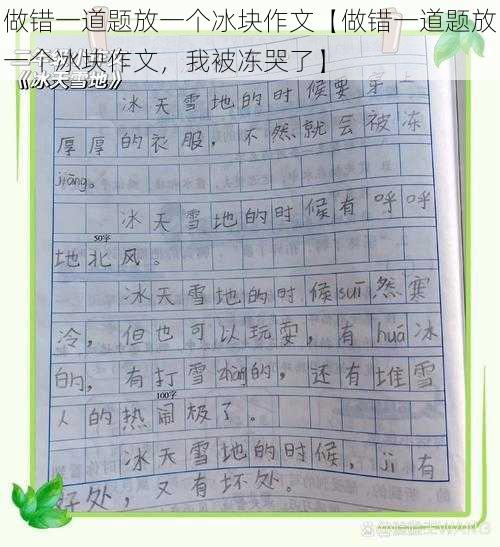 做错一道题放一个冰块作文【做错一道题放
一个冰块作文，我被冻哭了】
《冰天雪地》
冰天雪地的时候要穿上
厚厚的衣服，不然就会被冻
jiāng。
冰天雪地的时候有呼呼
50字
地北风。
冰天雪地的时候suī然寒
冷，但也可以玩耍，有huá冰
的，有打雪的，还有堆雪
100字
人的热闹极了。
冰天雪地的时候，jì有
好处，又有坏处。